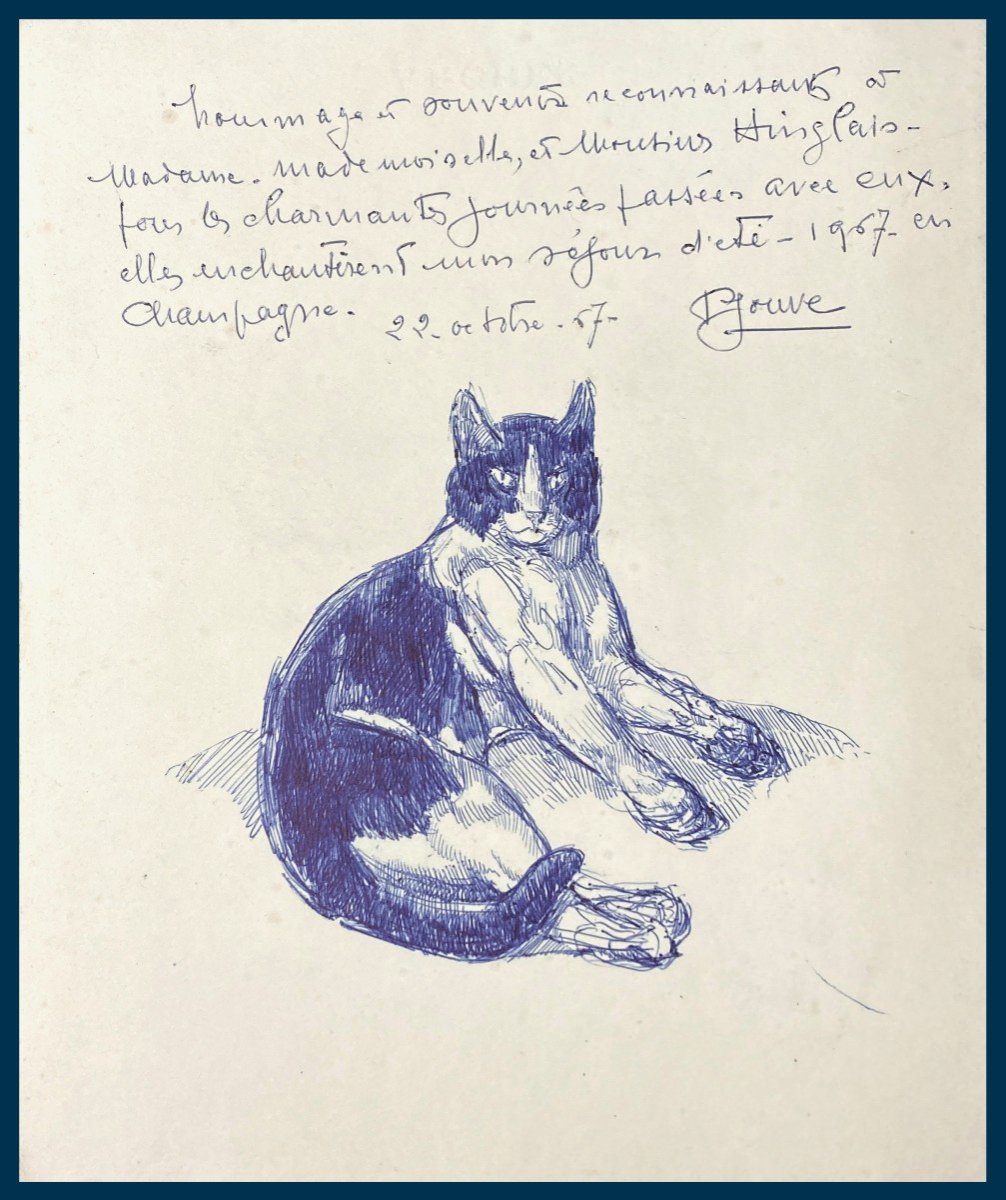 hommage et souvenirs reconnaissants à
Madame. mademoiselle, et Monsieur Hinglais-
pour les charmantes journées passées avec eux,
elles enchantèrent mon séjour d'eté - 1967- en
Champagne. 22. octobre. 67- PJouve